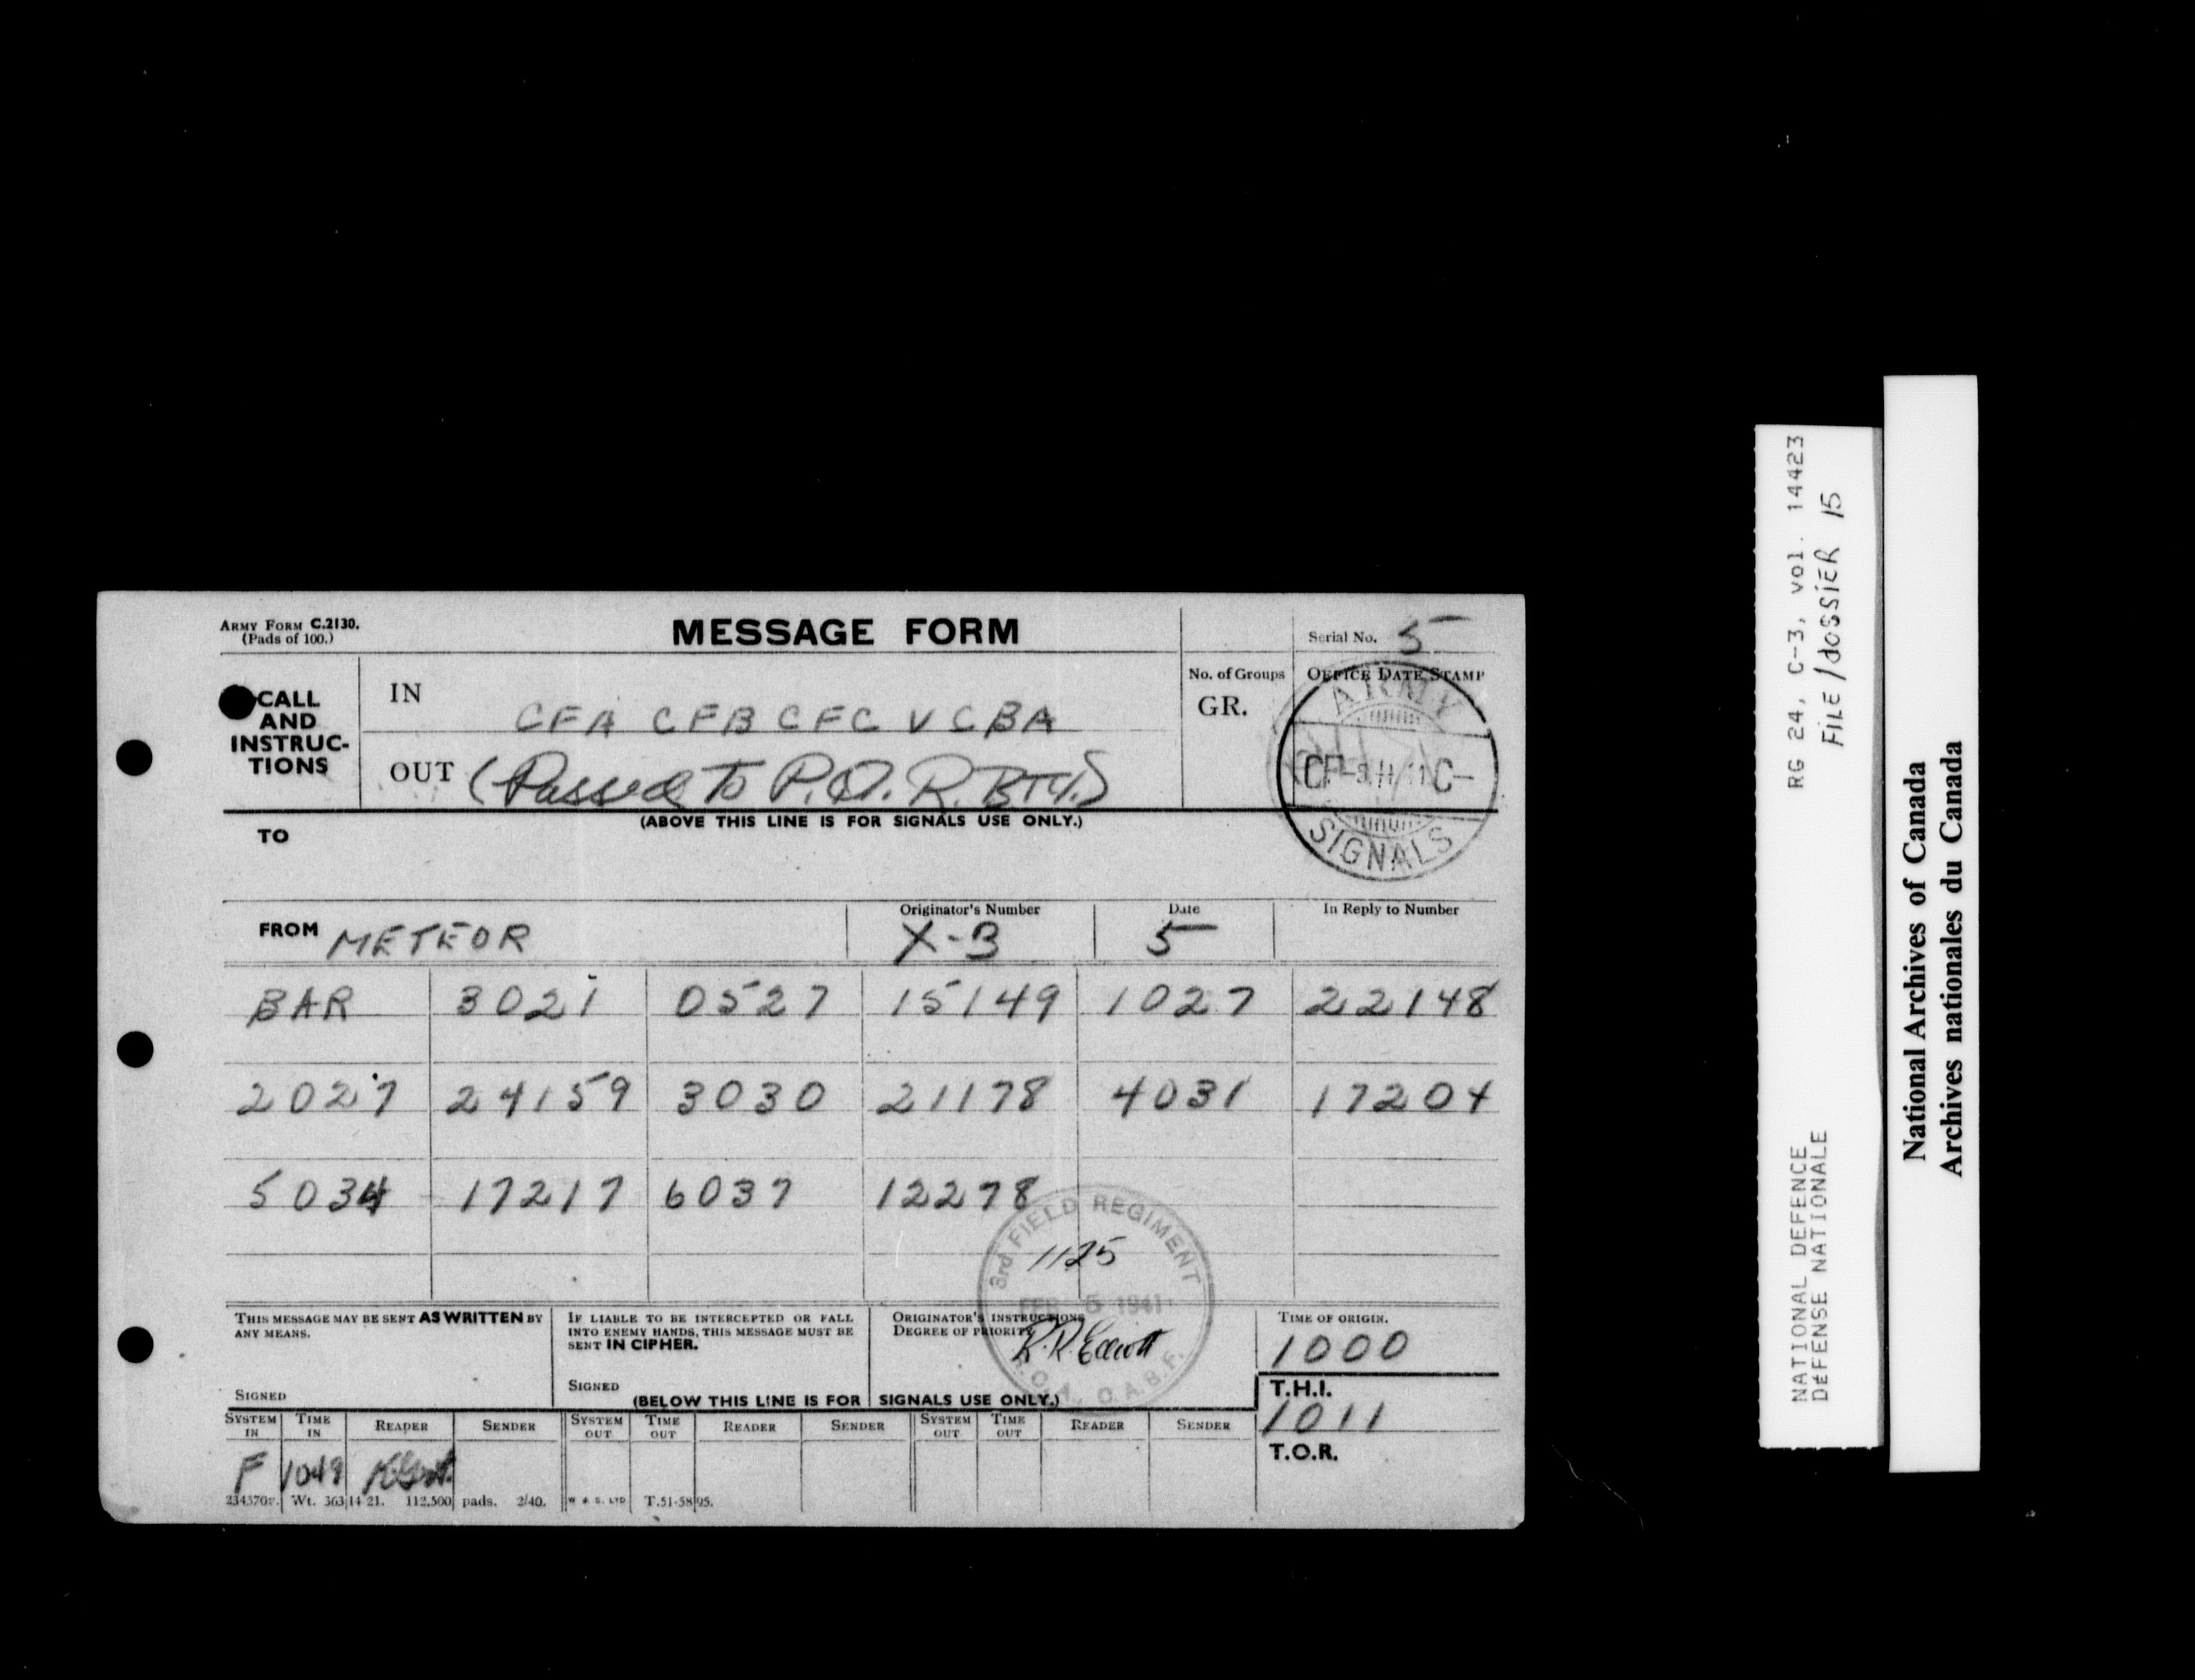 ARMY FORM C.2130.
(Pads of 100.)
MESSAGE FORM
Serial No. 5
CALL AND INSTRUC-TIONS
IN
CFA CFB CFC V CBA
OUT (Passed To P.O. R. BTY.)
No. of Groups
GR.
OFFICE DATE STAMP
ARMY
SIGNALS
(ABOVE THIS LINE IS FOR SIGNALS USE ONLY.)
TO
FROM METEOR
Originator's Number
X-3
Date
5
In Reply to Number
BAR 3021 0527 15149 1027 22148
2027 24159 3030 21178 4031 17204
5034 17217 6037 12278
3rd FIELD REGIMENT
1125
FEB 5 1941
R.R. Elliott
THIS MESSAGE MAY BE SENT AS WRITTEN BY ANY MEANS.
SIGNED
IF LIABLE TO BE INTERCEPTED OR FALL INTO ENEMY HANDS, THIS MESSAGE MUST BE SENT IN CIPHER.
SIGNED
ORIGINATOR'S INSTRUCTIONS
DEGREE OF PRIORITY
TIME OF ORIGIN.
1000
T.H.I.
1011
T.O.R.
(BELOW THIS LINE IS FOR SIGNALS USE ONLY.)
SYSTEM IN TIME IN READER SENDER SYSTEM OUT TIME OUT READER SENDER SYSTEM OUT TIME OUT READER SENDER
F 1049
Wt. 363 14 21. 112,500 pads. 2/40. W & S. LTD T.51-5895.
RG 24, C-3, vol. 14423
FILE/dossier 15
NATIONAL DEFENCE
DÉFENSE NATIONALE
National Archives of Canada
Archives nationales du Canada